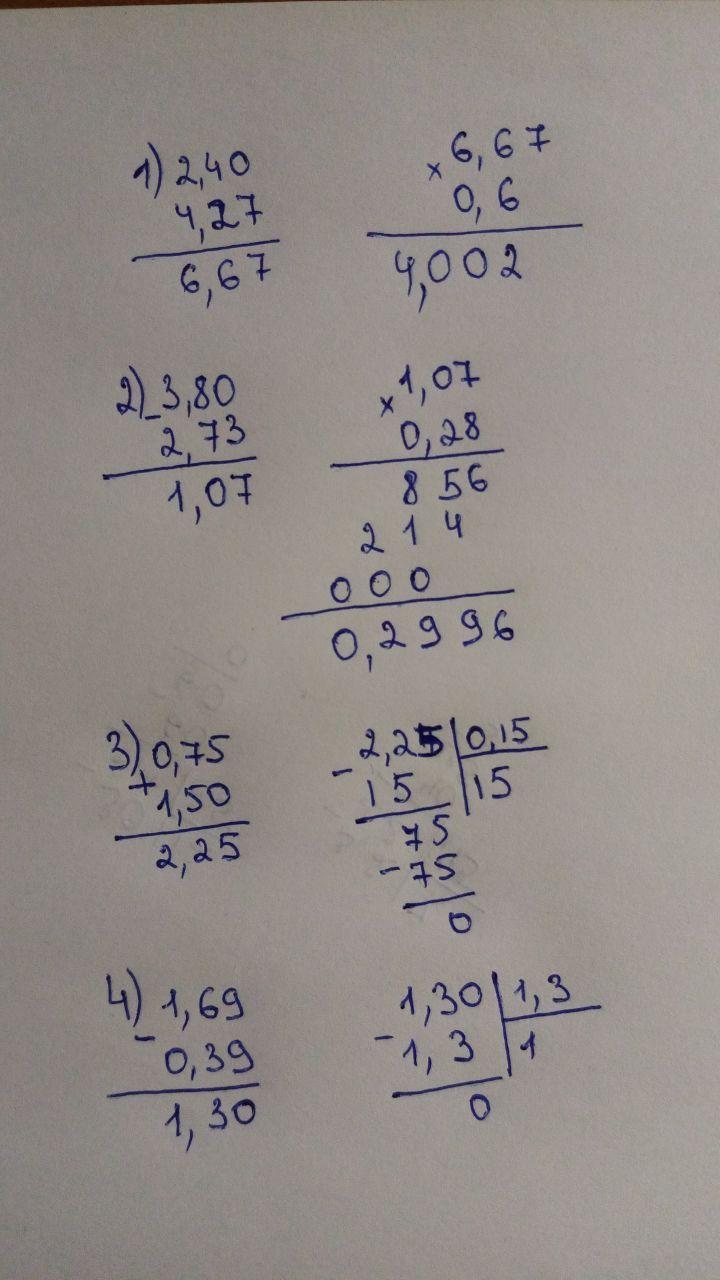 1) 2,40
4,27
6,67
× 6,67
0,6
4,002
2) - 3,80
2,73
1,07
× 1,07
0,28
8 56
2 1 4
0 0 0
0,2996
3) 0,75
+ 1,50
2,25
- 2,25 | 0,15
15 | 15
75
- 75
0
4) 1,69
- 0,39
1,30
1,30 | 1,3
- 1,3 | 1
0